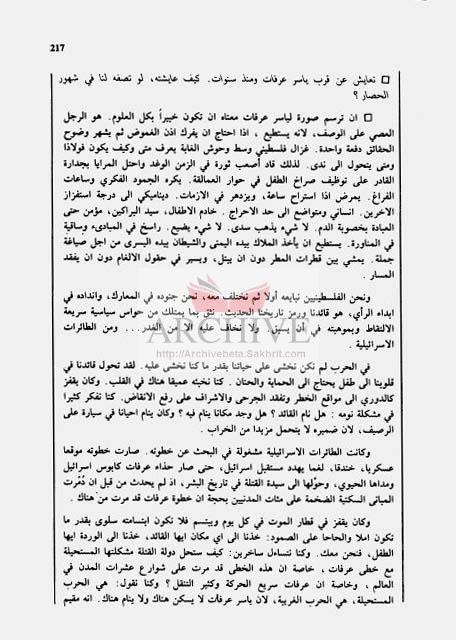 217
□ تعايش عن قرب ياسر عرفات ومنذ سنوات. كيف عايشته، لو تصفه لنا في شهور
الحصار ؟
□ ان ترسم صورة لياسر عرفات معناه ان تكون خبيراً بكل العلوم. هو الرجل
العصي على الوصف، لانه يستطيع ، اذا احتاج ان يفرك اذن الغموض ثم يشهر وضوح
الحقائق دفعة واحدة. غزال فلسطيني وسط وحوش الغابة يعرف متى وكيف يكون فولاذا
ومتى يتحول الى ندى. لذلك قاد أصعب ثورة في الزمن الوغد واحتل المرايا بجدارة
القادر على توظيف صراخ الطفل في حوار العمالقة. يكره الجمود الفكري وساعات
الفراغ. يمرض اذا استراح ساعة، ويزدهر في الازمات. ديناميكي الى درجة استفزاز
الآخرين. انساني ومتواضع الى حد الاحراج . خادم الاطفال، سيد البراكين، مؤمن حتى
العبادة بخصوبة الدم. لا شيء يذهب سدى. لا شيء يضيع. راسخ في المبادىء وساقية
في المناورة. يستطيع ان يأخذ الملاك بيده اليمنى والشيطان بيده اليسرى من اجل صياغة
جملة. يمشي بين قطرات المطر دون ان يبتل، ويسير في حقول الالغام دون ان يفقد
المسار .
ونحن الفلسطينيين نبايعه أولا ثم نختلف معه، نحن جنوده في المعارك، وانداده في
ابداء الرأي، هو قائدنا ورمز تاريخنا الحديث. نثق بما يمتلك من حواس سياسية سريعة
الالتقاط وبموهبته في أن يسبق. ولا نخاف عليه الا من القدر... ومن الطائرات
الاسرائيلية .
ARCHIVE
http://Archivebeta.Sakhrit.com
في الحرب لم نكن نخشى على حياتنا بقدر ما كنا نخشى عليه. لقد تحول قائدنا في
قلوبنا الى طفل يحتاج الى الحماية والحنان . كنا نخبئه عميقا هناك في القلب. وكان يقفز
كالدوري الى مواقع الخطر وتفقد الجرحى والاشراف على رفع الانقاض. كنا نفكر كثيرا
في مشكلة نومه : هل نام القائد ؟ هل وجد مكانا ينام فيه ؟ وكان ينام احيانا في سيارة على
الرصيف، لان ضميره لا يتحمل مزيدا من الخراب .
وكانت الطائرات الاسرائيلية مشغولة في البحث عن خطوته. صارت خطوته موقعا
عسكريا، خندقا، لغما يهدد مستقبل اسرائيل، حتى صار حذاء عرفات كابوس اسرائيل
ومداها الحيوي، وحوّلها الى سيدة القتلة في تاريخ البشر، اذ لم يحدث من قبل ان دُمّرت
المباني السكنية الضخمة على مئات المدنيين بحجة ان خطوة عرفات قد مرت من هناك .
وكان يقفز في قطار الموت في كل يوم ويبتسم فلا تكون ابتسامته سلوى بقدر ما
تكون املا والحاحا على الصمود: خذنا الى اي مكان ايها القائد، خذنا الى الوردة ايها
الطفل، فنحن معك. وكنا نتساءل ساخرين: كيف ستحل دولة القتلة مشكلتها المستحيلة
مع خطى عرفات، خاصة ان هذه الخطى قد مرت على شوارع عشرات المدن في
العالم ، وخاصة ان عرفات سريع الحركة وكثير التنقل؟ وكنا نقول: هي الحرب
المستحيلة، هي الحرب الغريبة، لان ياسر عرفات لا يسكن هناك ولا ينام هناك. انه مقيم